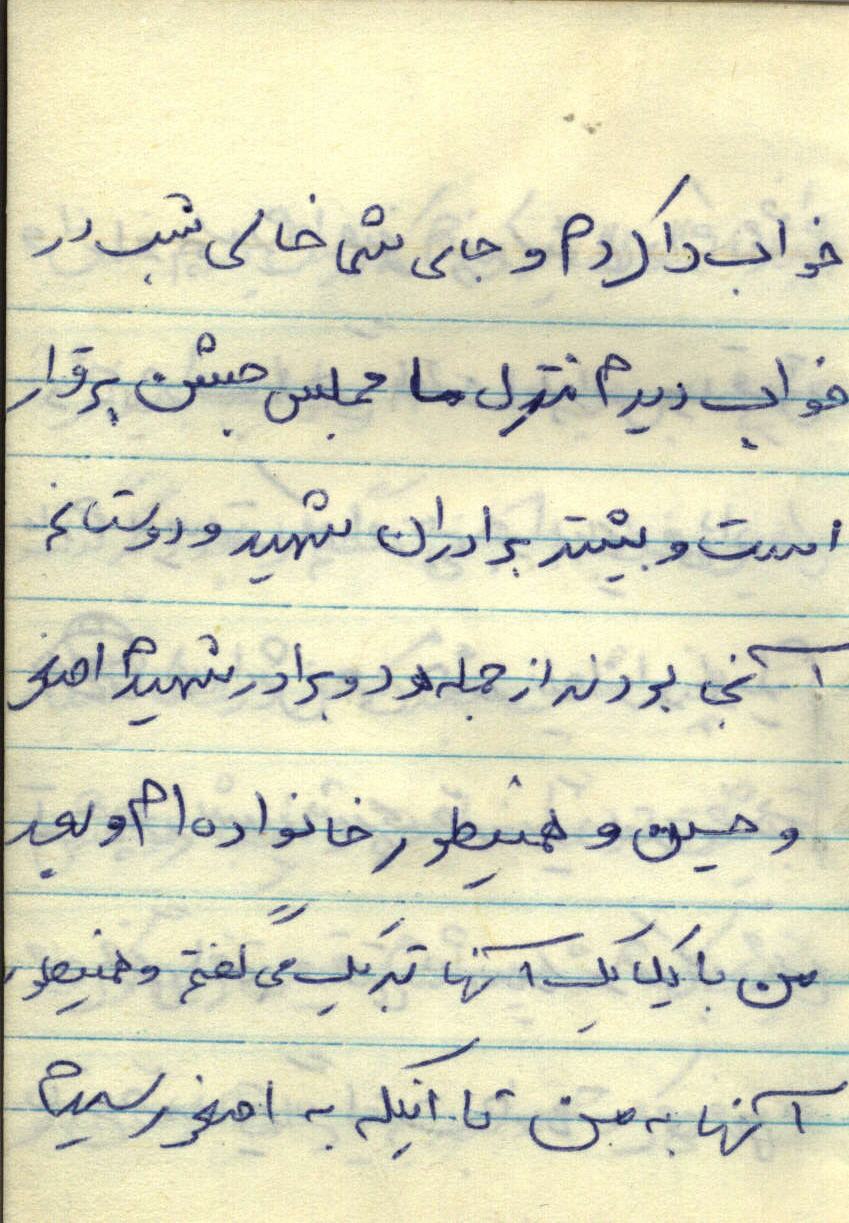 خواب را کردم و جای شما خالی شب در
خواب دیدم منزل ما مجلس جشن برقرار
است و بیشتر برادران شهید و دوستانم
آنجا بودند از جمله دو برادر شهیدم اصغر
و حسین و همینطور خانواده ام و بعد
من با یکایک آنها تبریک می گفتم و همینطور
آنها به من تا اینکه به اصغر رسیدم